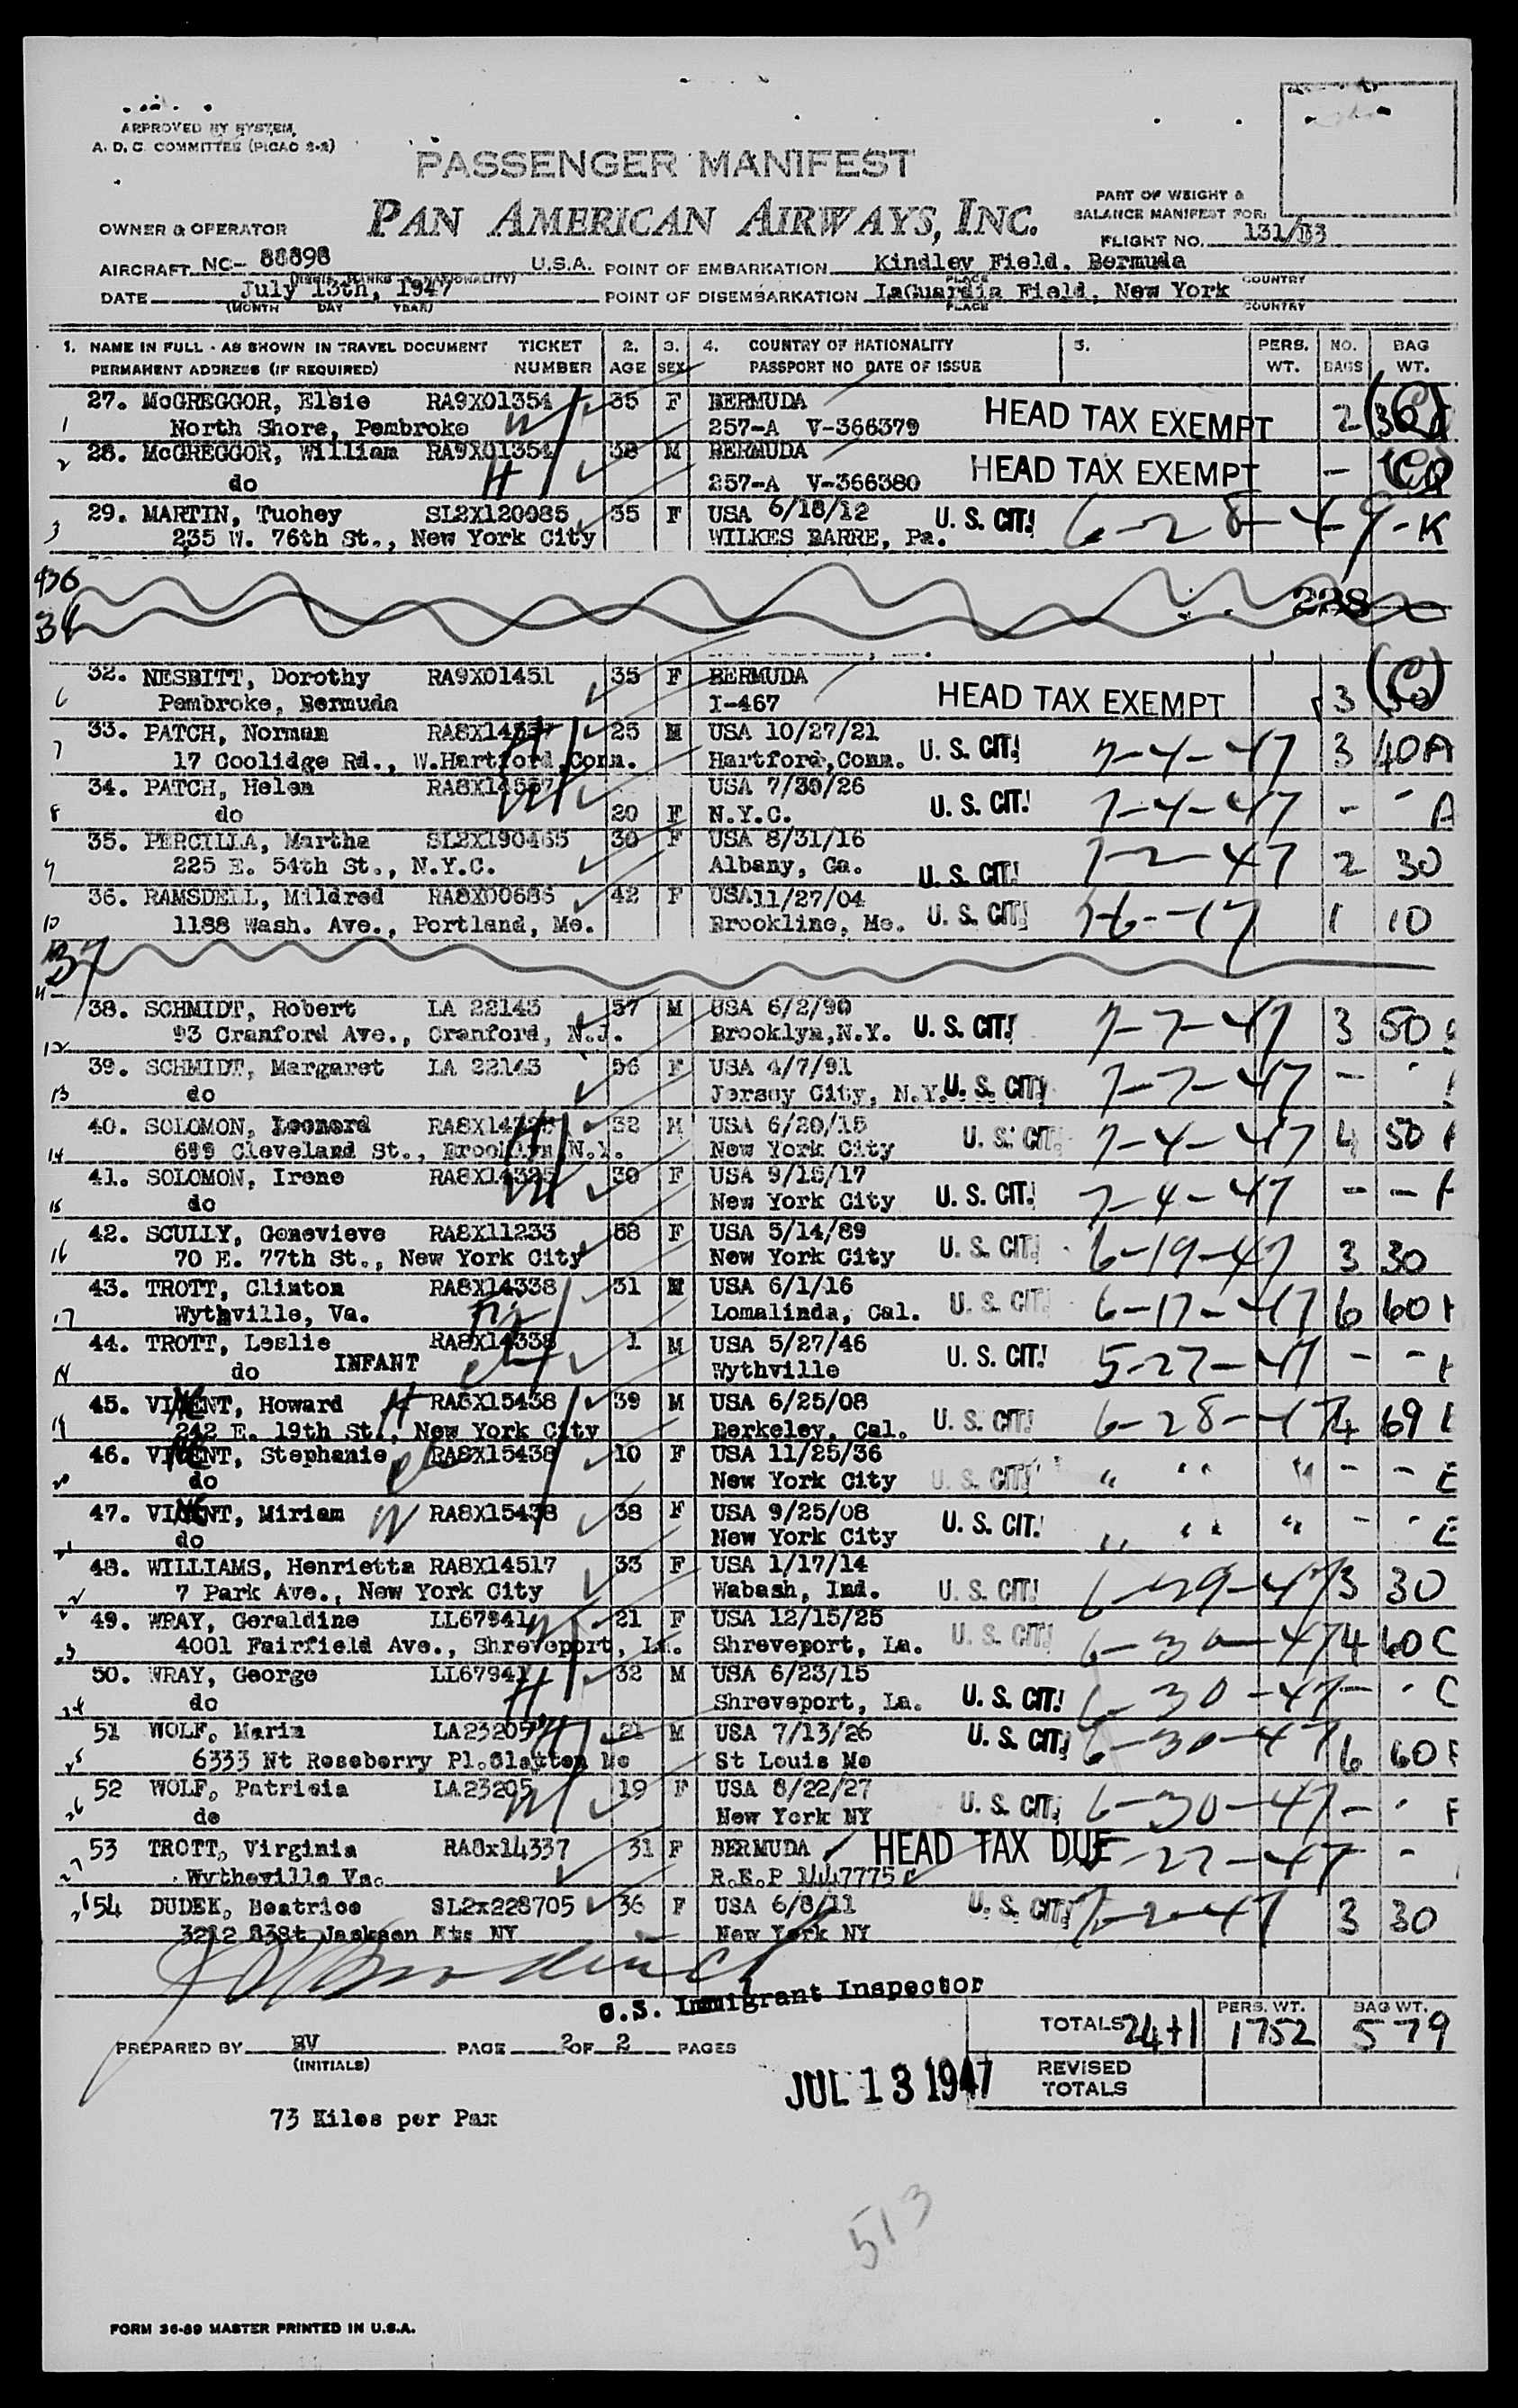 APPROVED BY SYSTEM,
A. D. C. COMMITTEE (PICAO 2-2)
PASSENGER MANIFEST
PAN AMERICAN AIRWAYS, INC.
PART OF WEIGHT &
BALANCE MANIFEST FOR:
OWNER & OPERATOR
FLIGHT NO. 131/
AIRCRAFT NC- 88898 U.S.A. POINT OF EMBARKATION Kindley Field, Bermuda
PLACE COUNTRY
DATE July 13th, 1947 POINT OF DISEMBARKATION LaGuardia Field, New York
(MONTH DAY YEAR) PLACE COUNTRY
1. NAME IN FULL - AS SHOWN IN TRAVEL DOCUMENT TICKET 2. 3. 4. COUNTRY OF NATIONALITY 5. PERS. NO. BAG
PERMANENT ADDRESS (IF REQUIRED) NUMBER AGE SEX PASSPORT NO DATE OF ISSUE WT. BAGS WT.
27. McGREGGOR, Elsie RA9X01354 W 35 F BERMUDA HEAD TAX EXEMPT 2 30
1 North Shore, Pembroke 257-A V-366379
2 28. McGREGGOR, William RA9X01354 38 M BERMUDA HEAD TAX EXEMPT -
do H 257-A V-366380
29. MARTIN, Tuohey SL2X120085 35 F USA 6/18/12 U. S. CIT. 6-28-49-K
3 235 W. 76th St., New York City WILKES BARRE, Pa.
228
32. NESBITT, Dorothy RA9X01451 35 F BERMUDA HEAD TAX EXEMPT 3 (C)
6 Pembroke, Bermuda I-467
33. PATCH, Norman H 25 M USA 10/27/21 U. S. CIT. 7-4-47 3 40 A
7 17 Coolidge Rd., W.Hartford,Conn. Hartford,Conn.
34. PATCH, Helen W USA 7/30/26 U. S. CIT. 7-4-47 - - A
8 do 20 F N.Y.C.
35. PERCILLA, Martha SL2X190465 30 F USA 8/31/16 7-2-47 2 30
9 225 E. 54th St., N.Y.C. Albany, Ga. U. S. CIT.
36. RAMSDELL, Mildred RA8X00686 42 F USA11/27/04 U. S. CIT. 1 10
10 1188 Wash. Ave., Portland, Me. Brookline, Me.
37
11
38. SCHMIDT, Robert LA 22143 57 M USA 6/2/90 U. S. CIT. 7-7-47 3 50
12 93 Cranford Ave., Cranford, N.J. Brooklyn,N.Y.
39. SCHMIDT, Margaret LA 22143 56 F USA 4/7/91 U. S. CIT. 7-7-47 -
13 do Jersey City, N.Y.
40. SOLOMON, Leonard H 32 M USA 6/20/15 U. S. CIT. 7-4-47 4 50
14 699 Cleveland St., Brooklyn N.Y. New York City
41. SOLOMON, Irene RA8X14325 W 30 F USA 9/15/17 U. S. CIT. 7-4-47 - -
15 do New York City
42. SCULLY, Genevieve RA8X11233 58 F USA 5/14/89 U. S. CIT. 6-19-47 3 30
16 70 E. 77th St., New York City New York City
43. TROTT, Clinton RA8X14338 31 M USA 6/1/16 U. S. CIT. 6-17-47 6 60
17 Wythville, Va. Lomalinda, Cal.
44. TROTT, Leslie RA8X14338 1 M USA 5/27/46 U. S. CIT. 5-27-47 - -
do INFANT Wythville
45. VINCENT, Howard H RA8X15438 39 M USA 6/25/08 U. S. CIT. 6-28-47 4 69
19 242 E. 19th St., New York City Berkeley, Cal.
46. VINCENT, Stephanie RA8X15438 10 F USA 11/25/36 U. S. CIT. " " " - - E
20 do New York City
47. VINCENT, Miriam W RA8X15438 38 F USA 9/25/08 U. S. CIT. " " " - - E
21 do New York City
48. WILLIAMS, Henrietta RA8X14517 33 F USA 1/17/14 U. S. CIT. 6-29-47 3 30
22 7 Park Ave., New York City Wabash, Ind.
49. WRAY, Geraldine LL67941 W 21 F USA 12/15/25 U. S. CIT. 6-30-47 4 60 C
23 4001 Fairfield Ave., Shreveport, La. Shreveport, La.
50. WRAY, George LL67941 H 32 M USA 6/23/15 U. S. CIT. 6-30-47 - - C
24 do Shreveport, La.
51 WOLF, Maria LA23205 H 21 M USA 7/13/26 U. S. CIT. 6-30-47 6 60 F
25 6333 Nt Roseberry Pl. Mo St Louis Mo
52 WOLF, Patricia LA23205 W 19 F USA 8/22/27 U. S. CIT. 6-30-47 - - F
26 do New York NY
53 TROTT, Virginia RA8x14337 31 F BERMUDA HEAD TAX DUE -27-47 -
27 Wytheville Va. R.E.P 1447775
54 DUDEK, Beatrice SL2x228705 36 F USA 6/8/11 U. S. CIT. 7-2-47 3 30
3212 83St Jackson Hts NY New York NY
U.S. Immigrant Inspector
TOTALS 24+1 PERS. WT. 1752 BAG WT. 579
PREPARED BY RV PAGE 2 OF 2 PAGES
(INITIALS)
REVISED
TOTALS
JUL 13 1947
73 Kilos per Pax
513
FORM 36-89 MASTER PRINTED IN U.S.A.